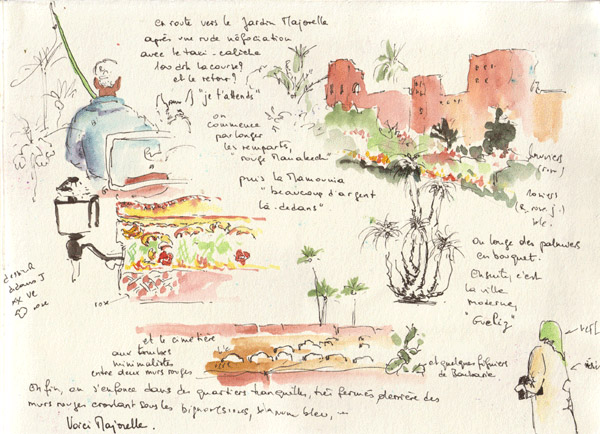 en route vers le Jardin Majorelle
après une rude négociation
avec le taxi-calèche
100 drh la course?
et le retour?
"je t'attends"
on
commence
par longer
les remparts,
"rouge Marrakech"
puis la Mamounia
"beaucoup d'argent
là-dedans"
rosiers
On longe des palmiers
en bouquet.
Ensuite, c'est
la ville
moderne,
"Gueliz"
rose
et le cimetière
aux tombes
minimalistes
entre deux murs rouges
et quelques figuiers
de Barbarie
VERT
Enfin, on s'enfonce dans des quartiers tranquilles, très fermés derrière des
murs rouges croulant sous les bignonnes,
Voici Majorelle.